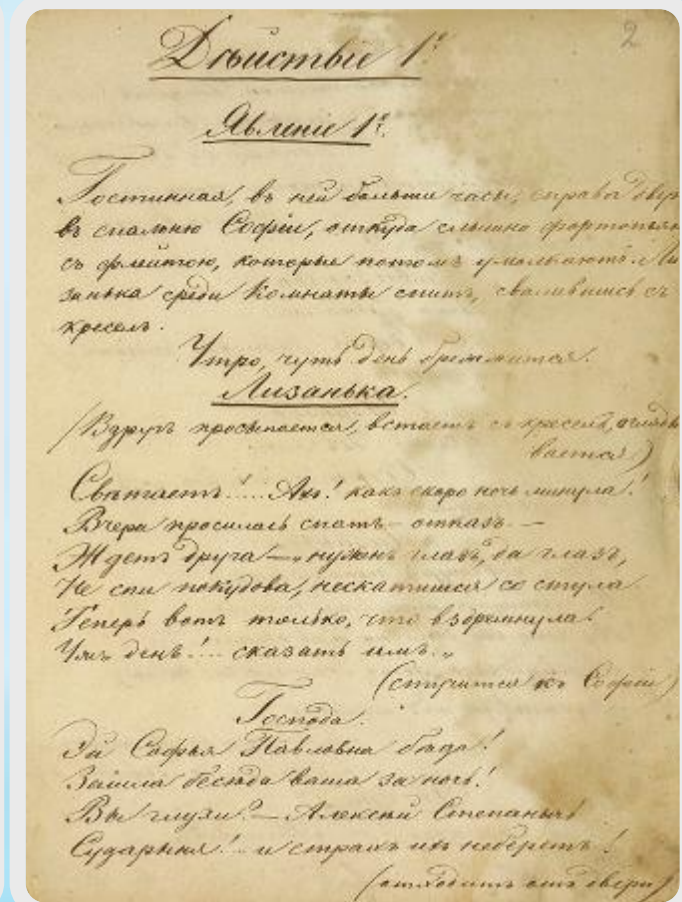 2
Дѣйствіе 1е
Явленіе 1е.
Гостинная, въ ней большіе часы, справа двер
въ спальню Софіи, откуда слышно фортопьян
съ флейтою, которые потомъ умолкаютъ. Ли
занька среди комнаты спитъ, свѣсившись съ
креселъ.
Утро, чуть день брезжится.
Лизанька.
(Вдругъ просыпается, встаетъ съ креселъ, огляды
вается)
Свѣтаетъ!.... Ахъ! какъ скоро ночь минула!
Вчера просилась спать – отказъ. –
Ждетъ друга – нуженъ глазъ, да глазъ,
Не спи покудова, нескатишся со стула
Теперь вотъ только, что вздремнула
Ужъ день!... сказать имъ..
(стучится къ Софіи)
Господа.
Эй Софья Павловна бѣда!
Зашла бесѣда ваша за ночь!
Вы глухи? – Алексѣй Степанычъ
Сударыня!.. и страхъ ихъ неберетъ!
(отходитъ отъ двери)